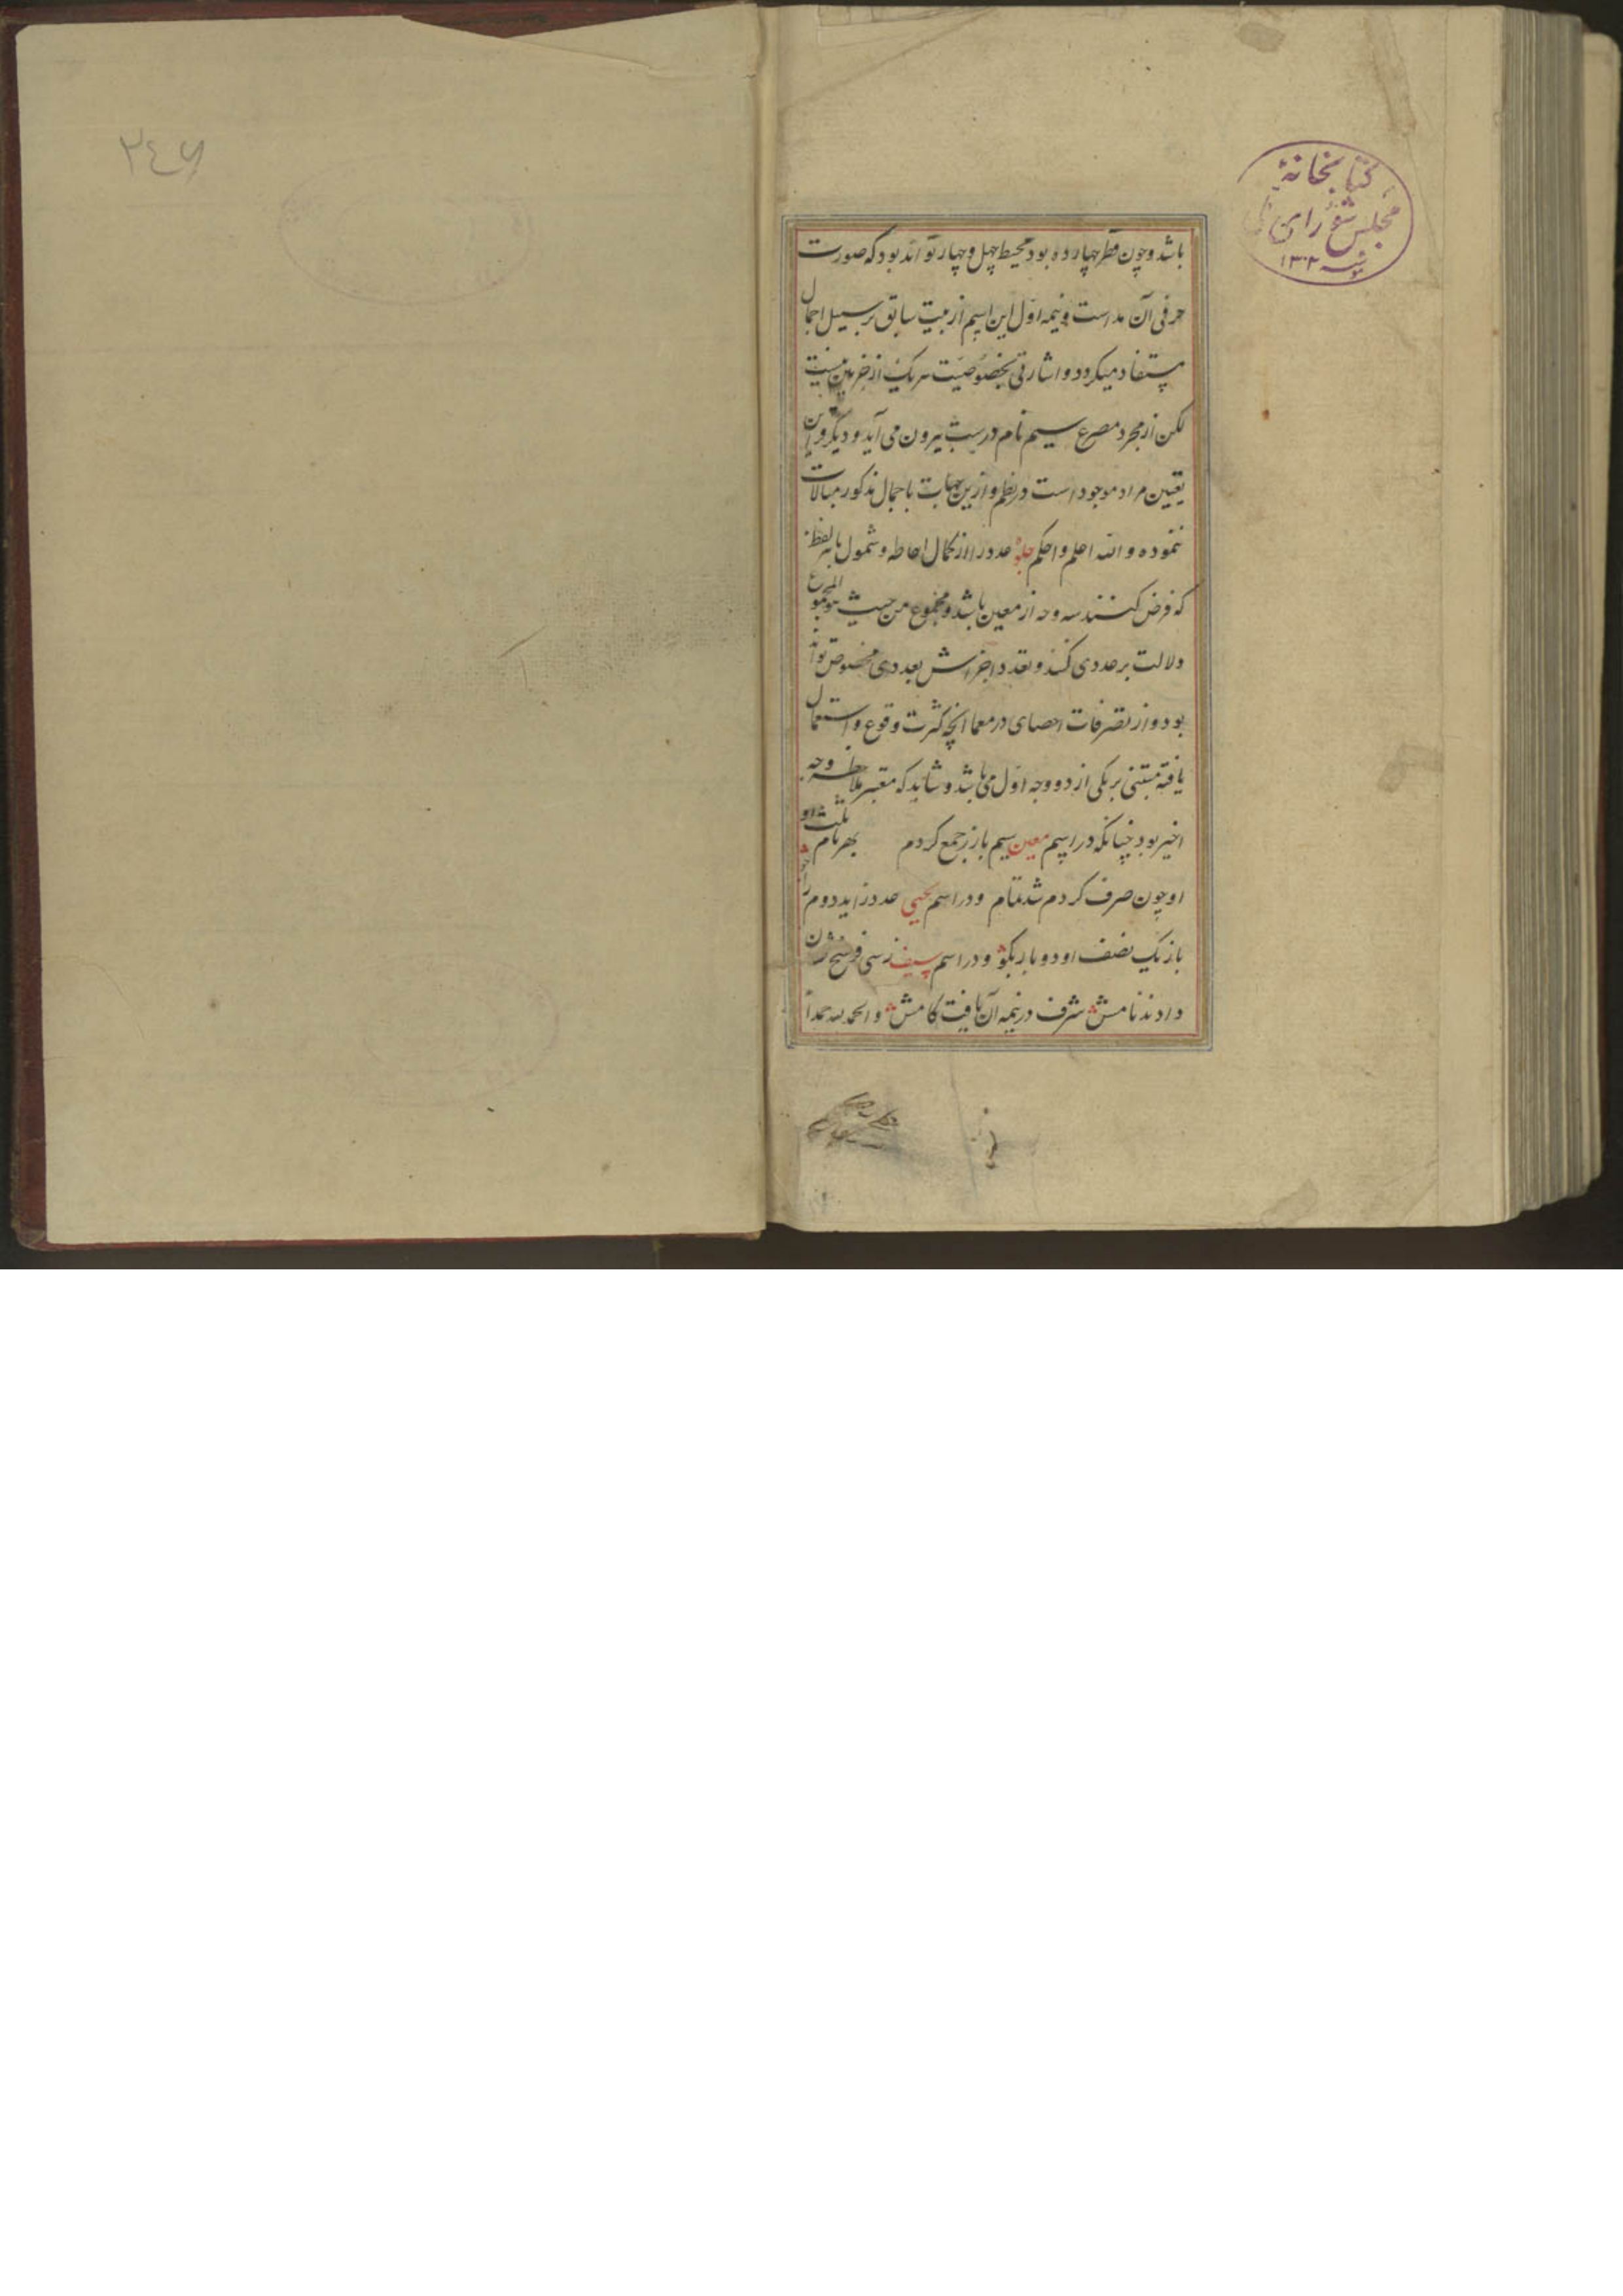 ۲٤۶
کتابخانهٔ
مجلس شورای ملی
۱۳۰۲
باشد و چون قطر چهارده بود محیط چهل و چهار تواند بود که صورت
حرفی آن مد است و نیمه اول این اسم از بیت سابق بر سبیل اجمال
مستفاد میگردد و اشارتی بخصوصیت هر یک از جزءین نیست
لکن از مجرد مصرع سیم نام درست بیرون می آید و دیگر
تعیین مراد موجود است در نظم و ازین جهات باجمال مذکور مبالات
ننموده و الله اعلم و احکم جلوه عدد را از کمال احاطه و شمول بهر لفظ
که فرض کنند سه وجه از معین باشد و مجموع من حیث هو المجموع
دلالت بر عددی کند و تعدد اجزاش بعددی مخصوص تواند
بود و از تصرفات احصای در معما آنچه کثرت وقوع و استعمال
یافته مبتنی بر یکی از دو وجه اول می باشد و شاید که معتبر ملاحظه وجه
اخیر بود چنانکه در اسم معین سیم باز زر جمع کردم بهر نام ثلث او
او چون صرف کردم شد تمام و در اسم یحیی عدد زاید دوم را
باز یک نصف او دو بار بگو و در اسم سیف زسی
دادند نامش شرف در نیمه آن یافت کامش و الحمد لله حمداً